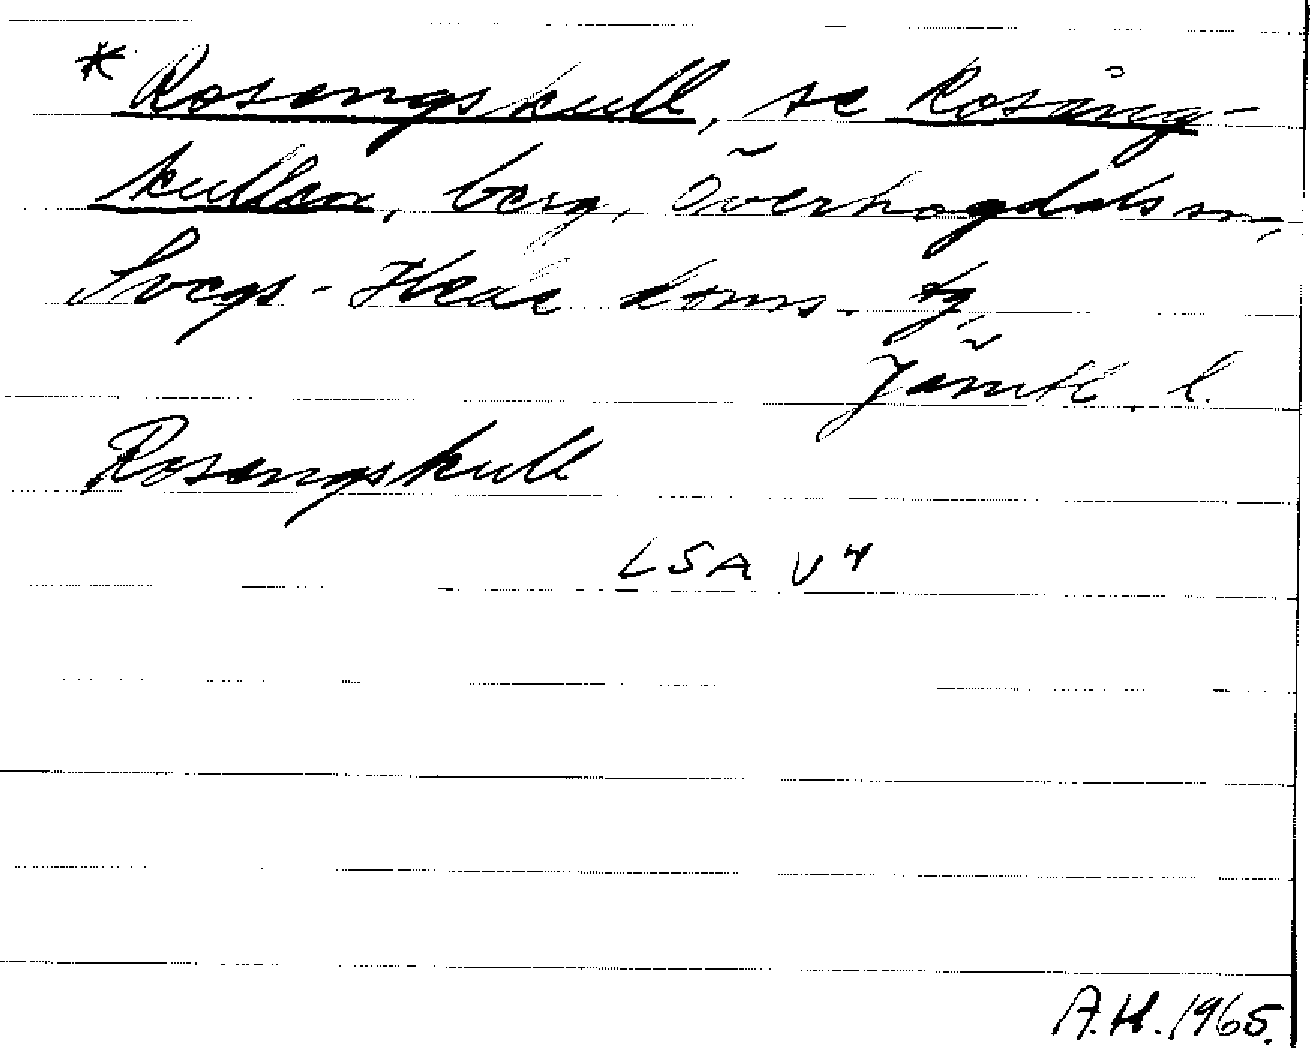 * Rosengskull, se Rosång-
kullen, berg, Överhogdals sn,
Svegs-Hede doms. tg,
Jämtl. l.
Rosengskull
LSA V4
A.H. 1965.